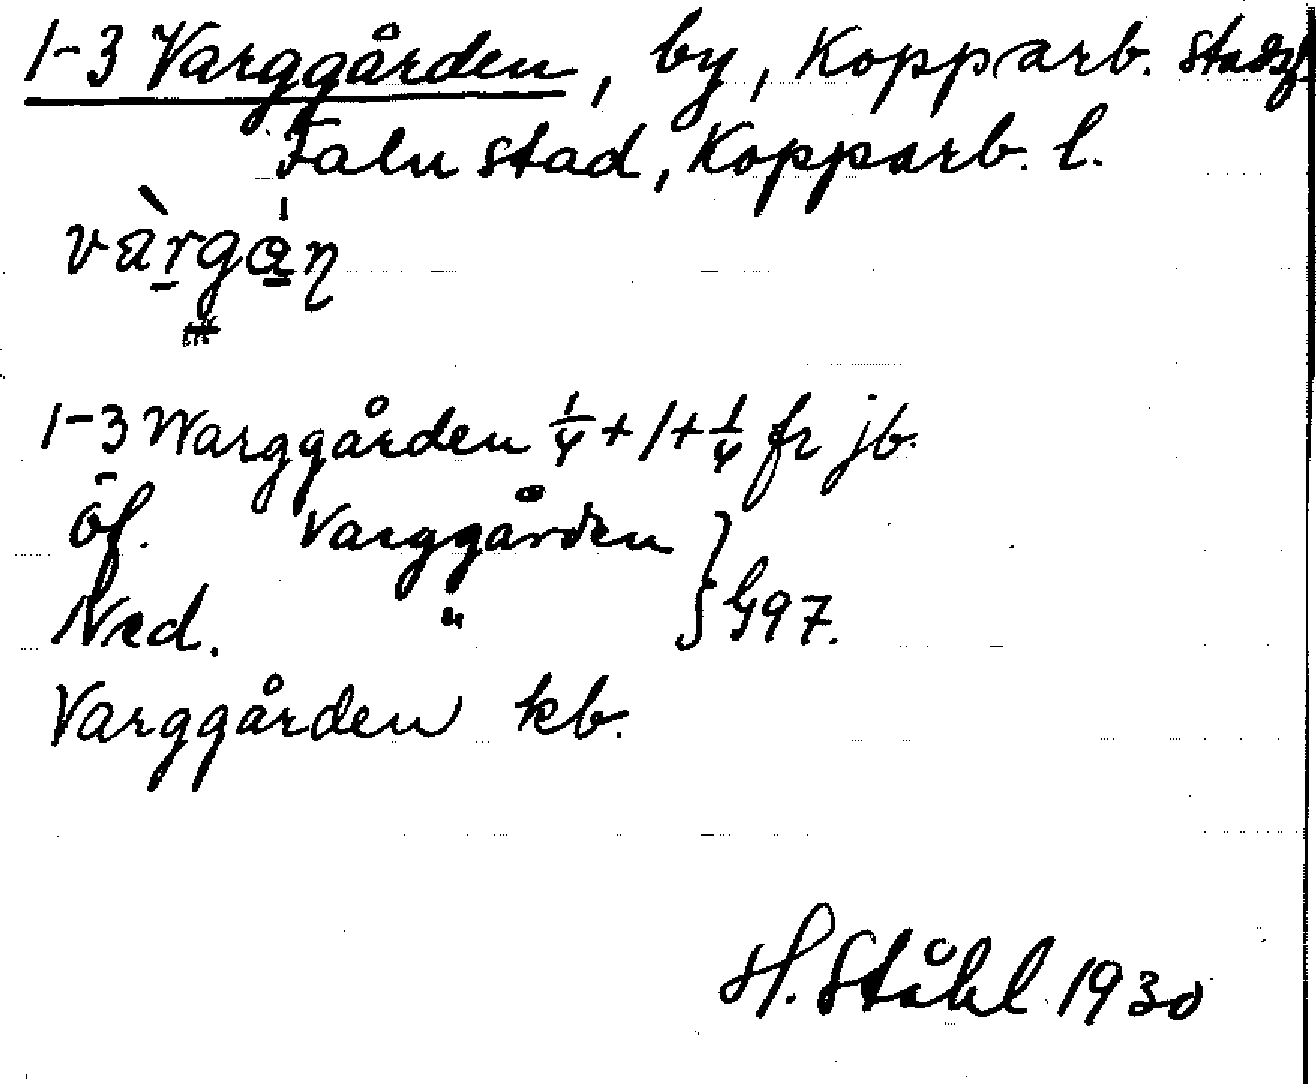 1-3 Varggården, by, Kopparb.
Falu stad, Kopparb. l.
1-3 Warggården 1/4 + 1 + 1/4 fr jb.
Öf. Varggården
Ned. " } G97.
Varggården kb.
H. Ståhl 1930